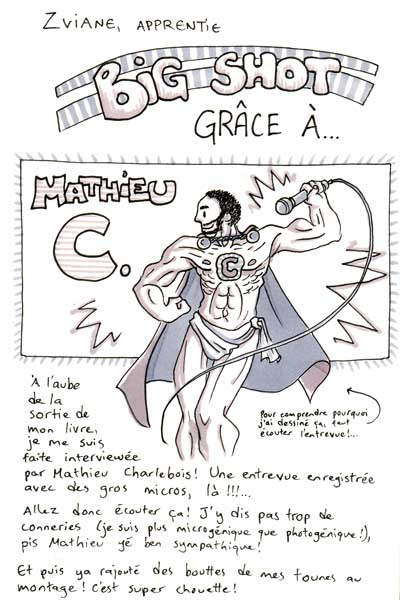 Zviane, apprentie
BiG SHOT
GRÂCE À...
MATHiEU
C.
C
À l'aube
de la
sortie de
mon livre,
je me suis
faite interviewée
par Mathieu Charlebois! Une entrevue enregistrée
avec des gros micros, là!!!...
Pour comprendre pourquoi
j'ai dessiné ça, faut
écouter l'entrevue!...
Allez donc écouter ça! J'y dis pas trop de
conneries (je suis plus microgénique que photogénique!),
pis Mathieu yé ben sympathique!
Et puis ya rajouté des bouttes de mes tounes au
montage! C'est super chouette!